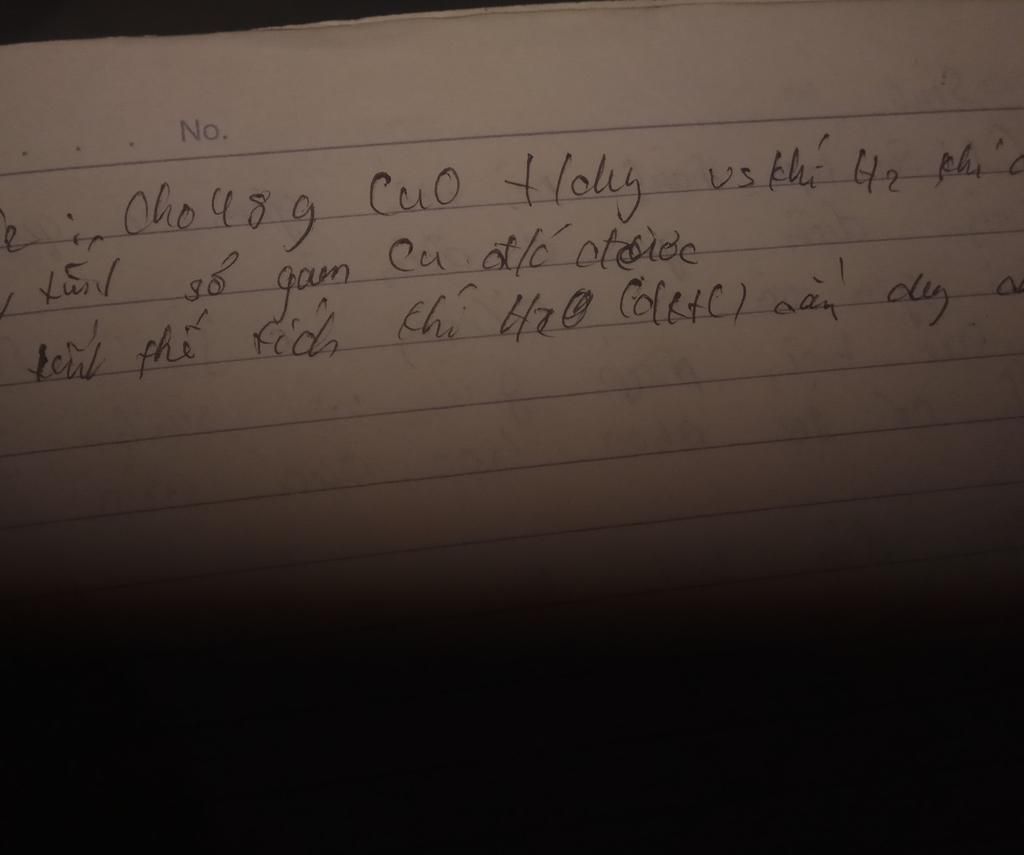 No.
: Cho 48 g CuO t/dụng vs khí H2 khi
tính số gam Cu đ/c được
tính thể tích khí H2 (đktc) cần dụng